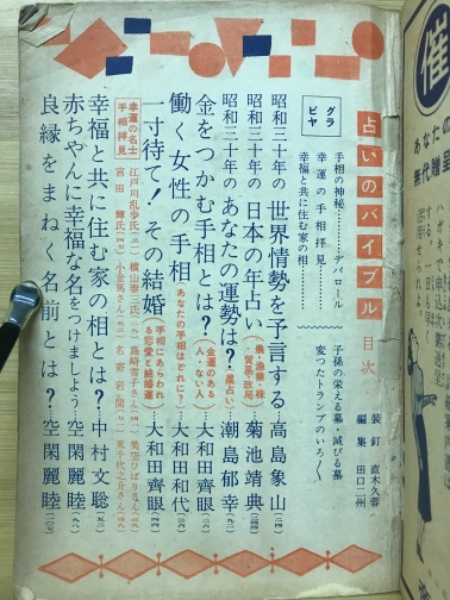 占いのバイブル 目次
装釘 直木久蓉
編集 田口二州
グラビヤ
手相の神秘…………デバロール
幸運の手相拝見…………
幸福と共に住む家の相…………
子孫の栄える墓・滅びる墓
変つたトランプのいろ〱
昭和三十年の 世界情勢を予言する…高島象山(二四)
昭和三十年の 日本の年占い(農・漁業・株・貿易・政局)…菊池靖典
昭和三十年の あなたの運勢は?(星占い)…潮島郁幸(九二)
金をつかむ手相とは?(金運のある人・ない人)…大和田齊眼(二六)
働く女性の手相(あなたの手相はどれに?)…大和田和代(三六)
一寸待て!その結婚(手相にあらわれる恋愛と結婚運)…大和田齊眼(四四)
幸運の名士手相拝見
江戸川乱歩氏 横山泰三氏 島崎雪子さん 美空ひばりさん
宮田輝氏 小金馬さん 名寄岩関 東千代之介さん
幸福と共に住む家の相とは?…中村文聡(五二)
赤ちやんに幸福な名をつけましよう…空閑麗睦(九八)
良縁をまねく名前とは?…空閑麗睦(一〇七)
催
あなたの
無代贈呈